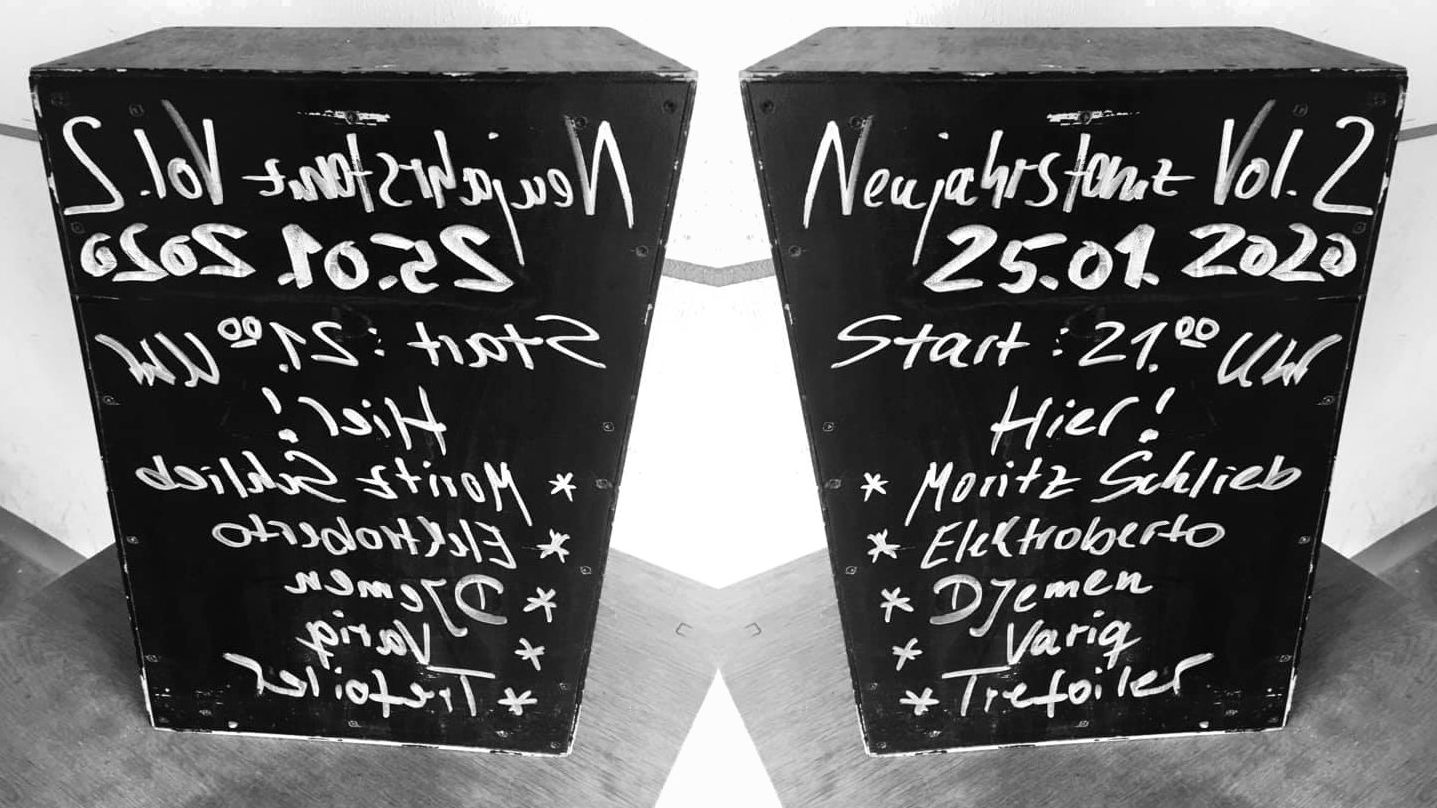 Neujahrstanz Vol. 2
25.01. 2020
Start : 21.⁰⁰ Uhr
Hier!
* Moritz Schlieb
* Elektroberto
* DJemen
* Variq
* Trefoiler
Neujahrstanz Vol. 2
25.01. 2020
Start : 21.⁰⁰ Uhr
Hier!
* Moritz Schlieb
* Elektroberto
* DJemen
* Variq
* Trefoiler